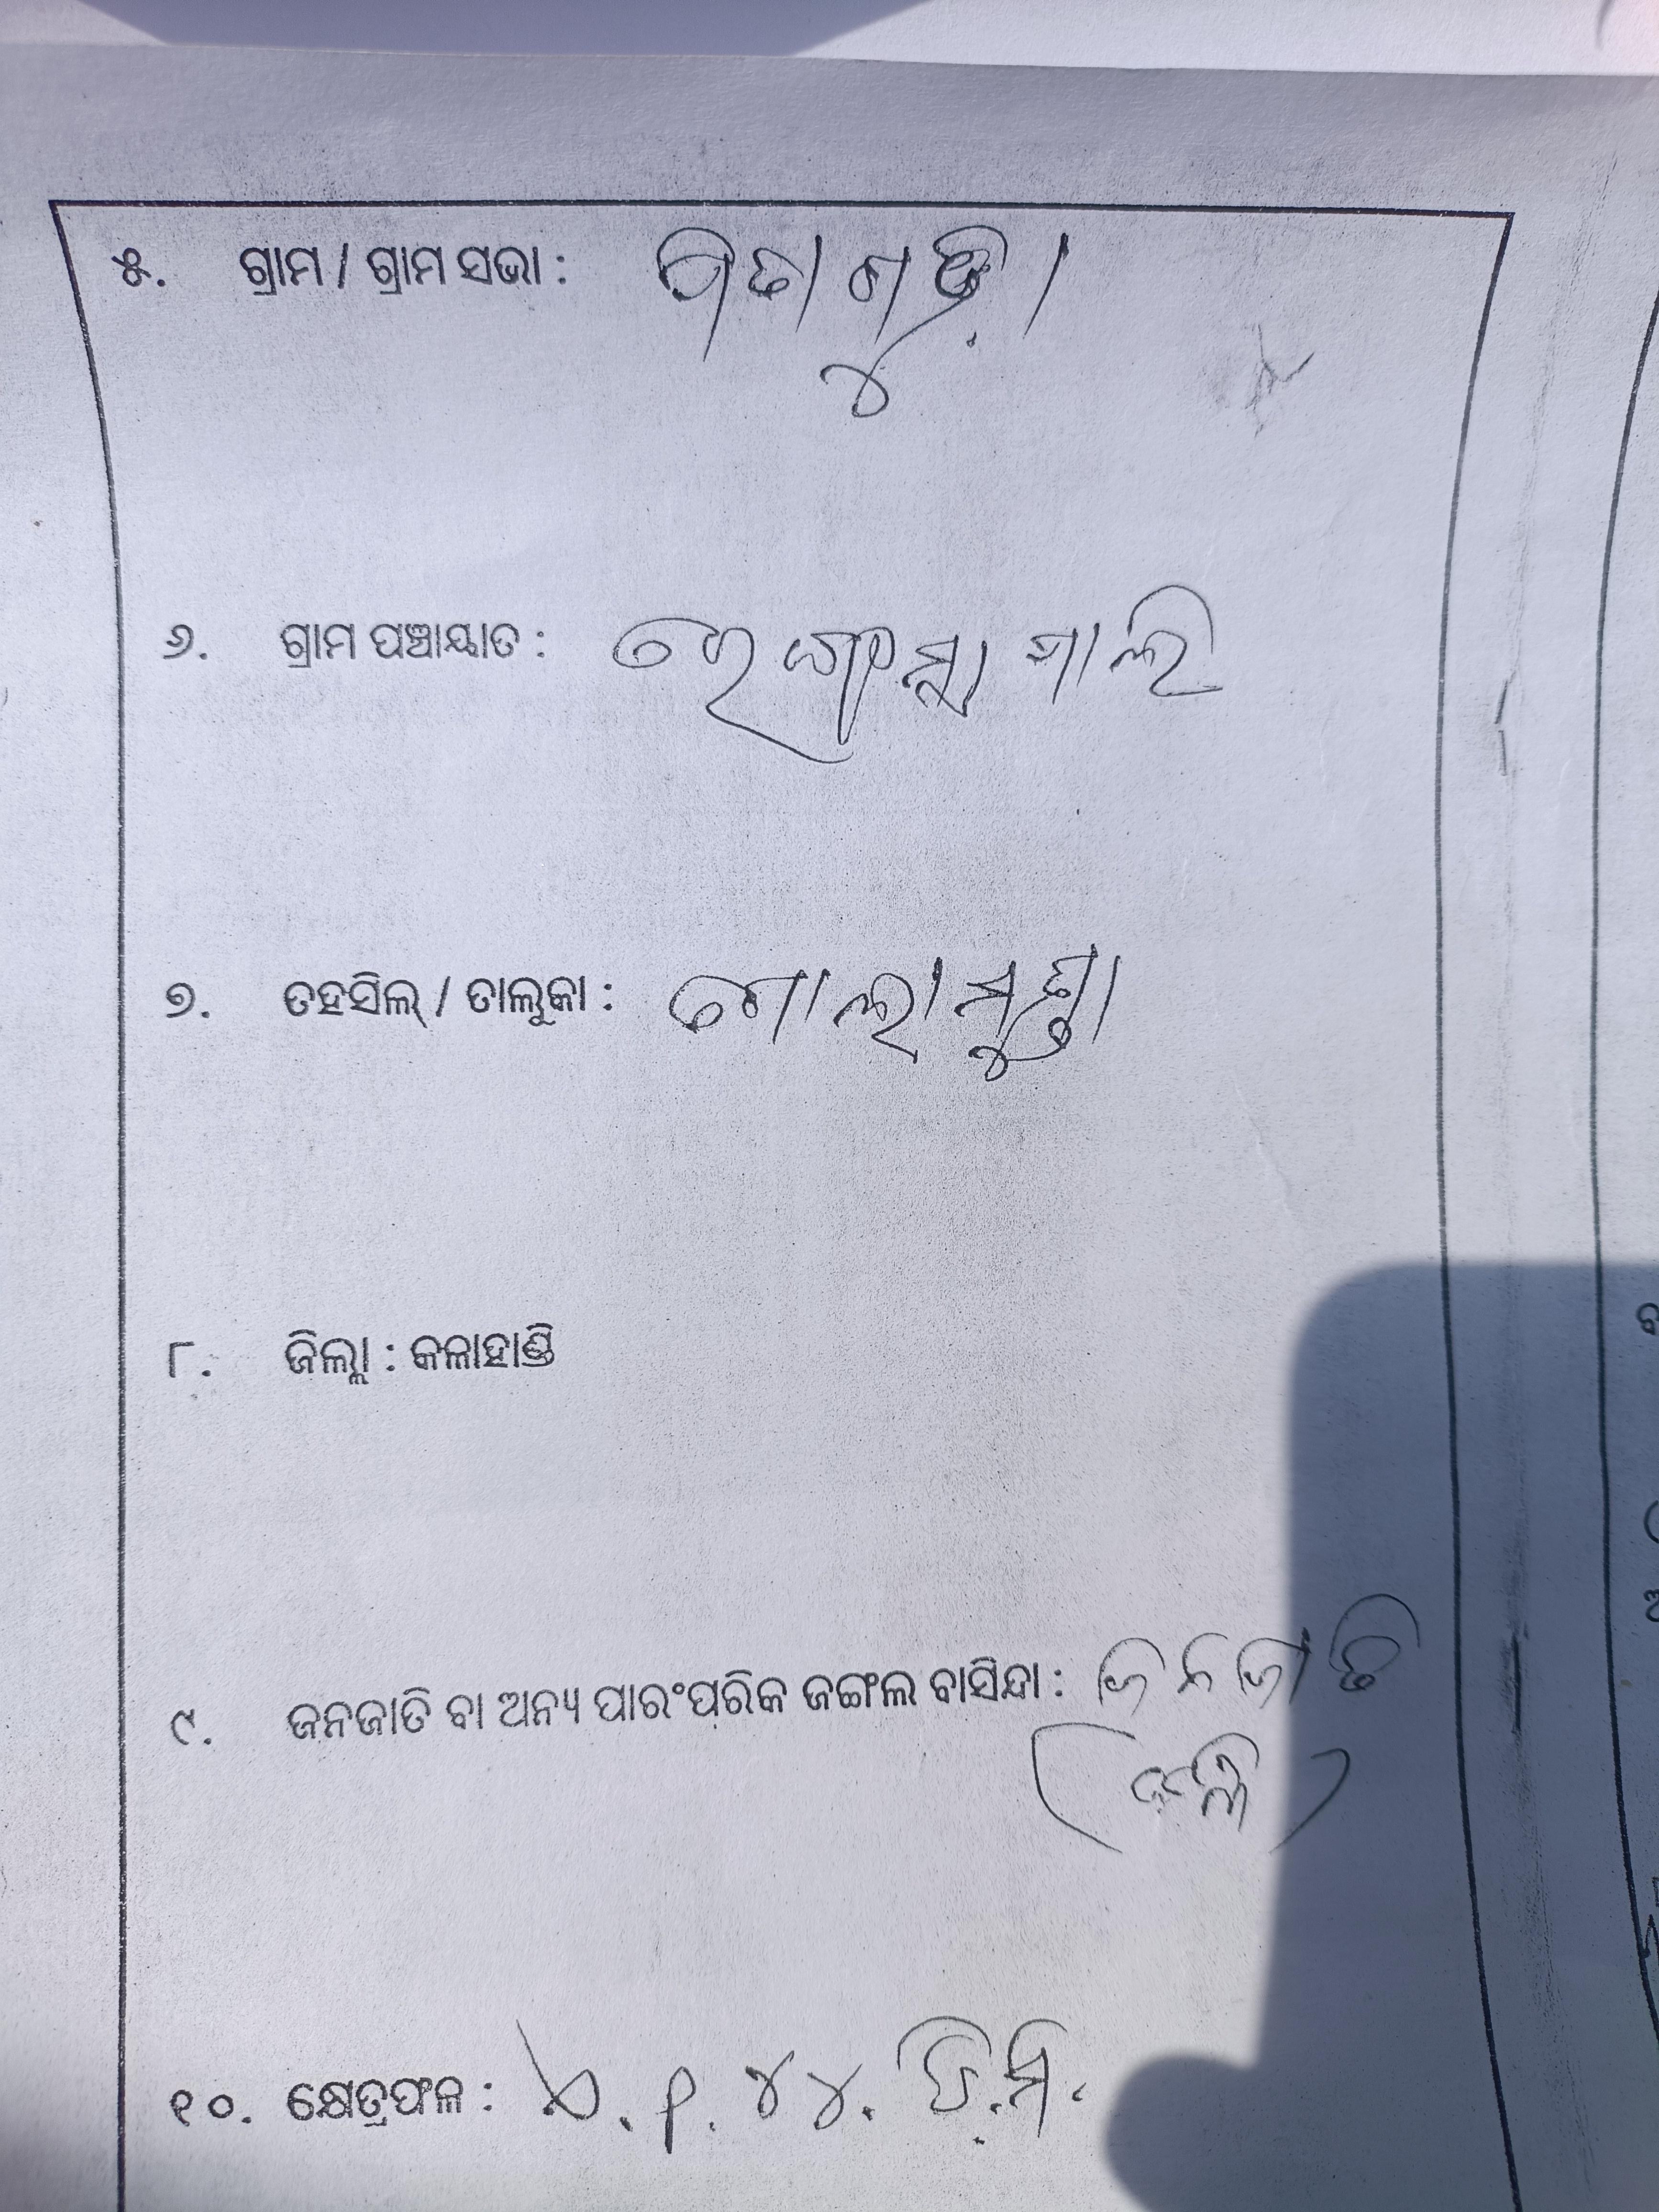 ୫. ଗ୍ରାମ / ଗ୍ରାମ ସଭା :
୬. ଗ୍ରାମ ପଞ୍ଚାୟାତ :
୭. ତହସିଲ୍ / ତାଲୁକା : ଗୋଲାମୁଣ୍ଡା
୮. ଜିଲ୍ଲା : କଳାହାଣ୍ଡି
୯. ଜନଜାତି ବା ଅନ୍ୟ ପାରଂପରିକ ଜଙ୍ଗଲ ବାସିନ୍ଦା : ଜନଜାତି
୧୦. କ୍ଷେତ୍ରଫଳ : ଏ. ୧. ୪୪. ଡି.ମି.